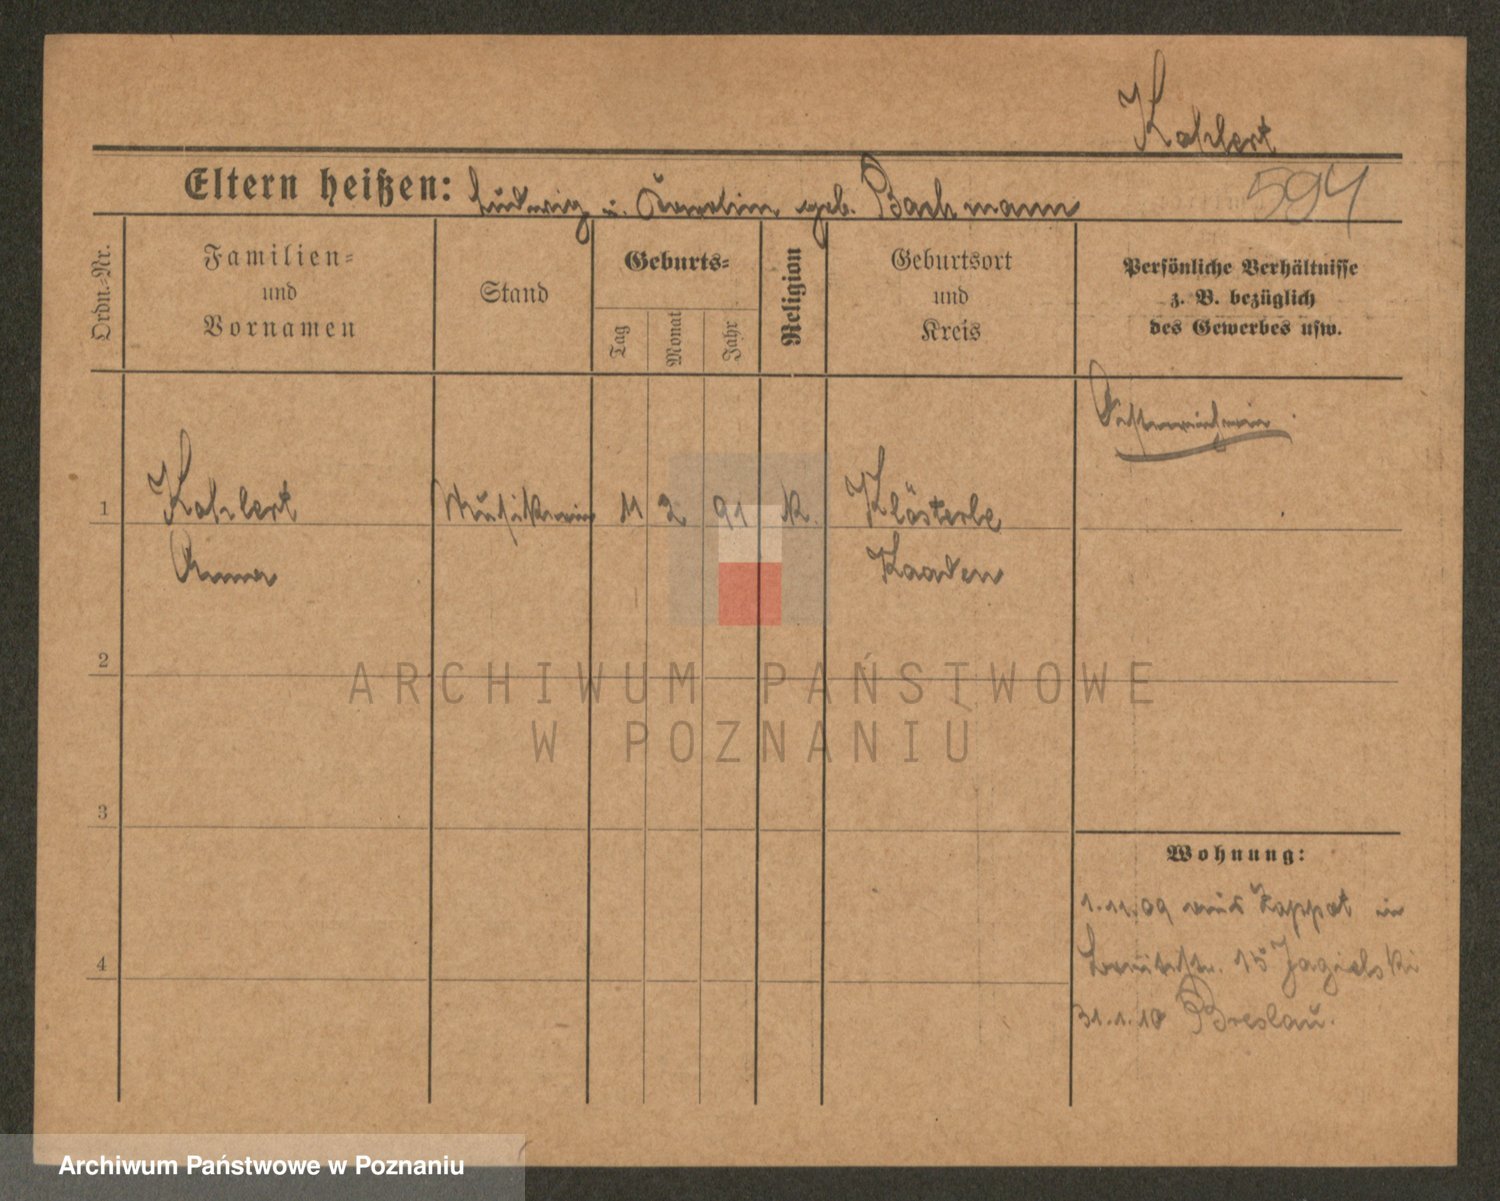 Kahlert
Eltern heißen: Ludwig u. Karolin geb. Bachmann
594
Ordn.-Nr.
Familien-
und
Vornamen
Stand
Geburts-
Tag
Monat
Jahr
Religion
Geburtsort
und
Kreis
Persönliche Verhältnisse
z. B. bezüglich
des Gewerbes usw.
Österreicherin
1 Kahlert Musikerin 11 2 91 K. Klösterle
Anna Kaaden
2
ARCHIWUM PAŃSTWOWE
W POZNANIU
3
Wohnung:
1.11.09 aus Zoppot in
15 Jagielski
4
31.1.10 Breslau.
Archiwum Państwowe w Poznaniu